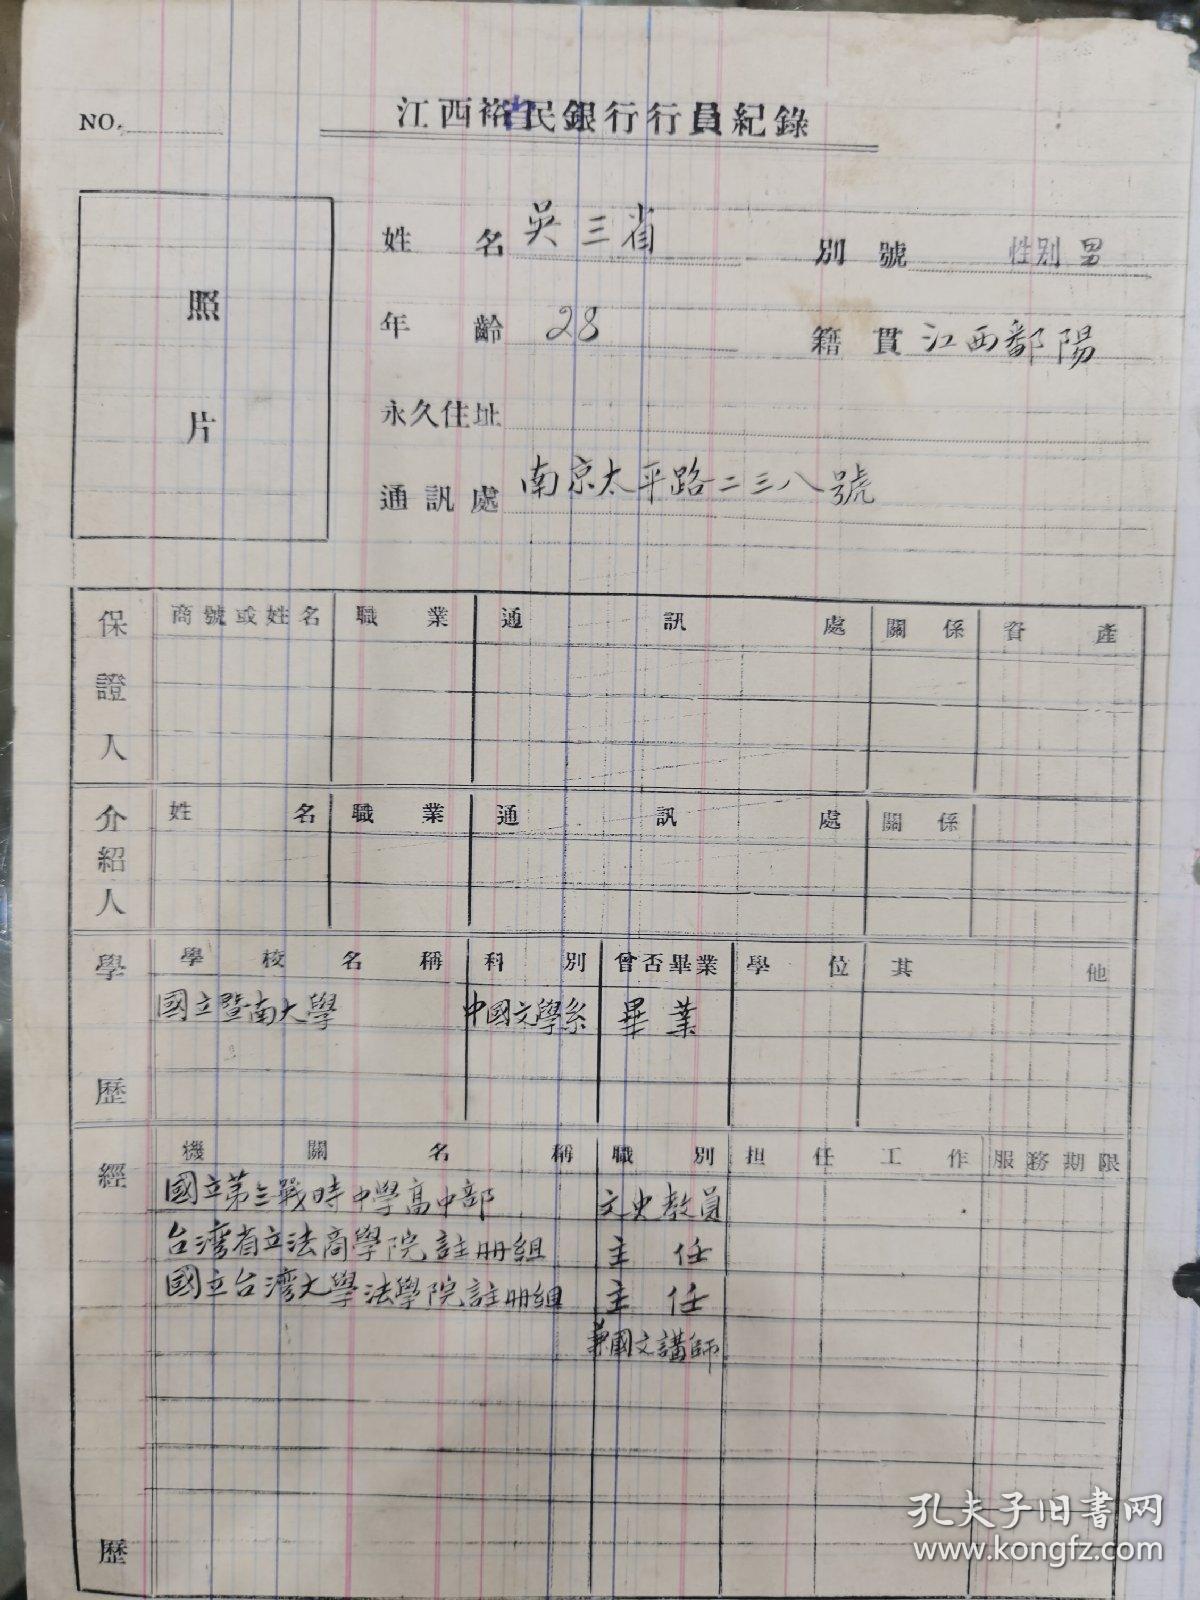 NO.
江西裕民銀行行員紀錄
照片
姓名 吳三省 別號 性別 男
年齡 28 籍貫 江西鄱陽
永久住址
通訊處 南京太平路二三八號
保證人
商號或姓名 職業 通訊處 關係 資產
介紹人
姓名 職業 通訊處 關係
學歷
學校名稱 科別 曾否畢業 學位 其他
國立暨南大學 中國文學系 畢業
經歷
機關名稱 職別 担任工作 服務期限
國立第三戰時中學高中部 文史教員
台灣省立法商學院註册組 主任
國立台灣大學法學院註册組 主任
兼國文講師
孔夫子旧书网
www.kongfz.com